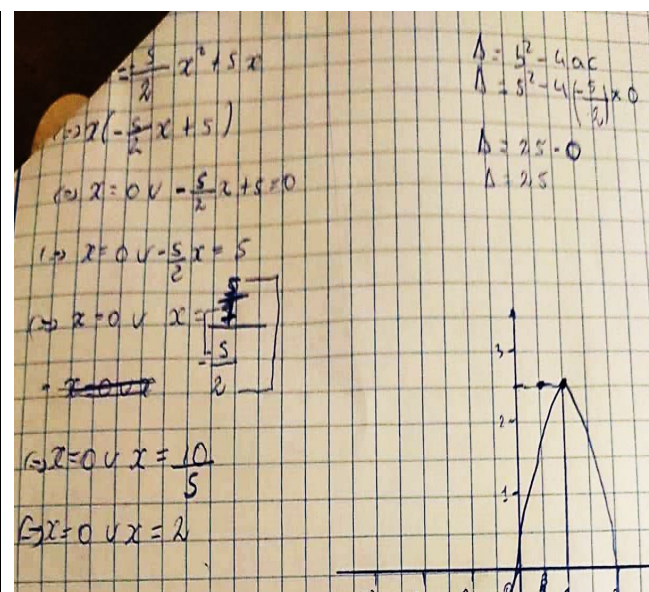 = -5/2 x² + 5x
(=) x(-5/2 x + 5)
(=) x = 0 ∨ -5/2 x + 5 = 0
(=) x = 0 ∨ -5/2 x = 5
(=) x = 0 ∨ x = 5/(-5/2)
(=) x = 0 ∨ x = 10/5
(=) x = 0 ∨ x = 2
Δ = b² - 4ac
Δ = 5² - 4(-5/2) × 0
Δ = 25 - 0
Δ = 25
3
2
1